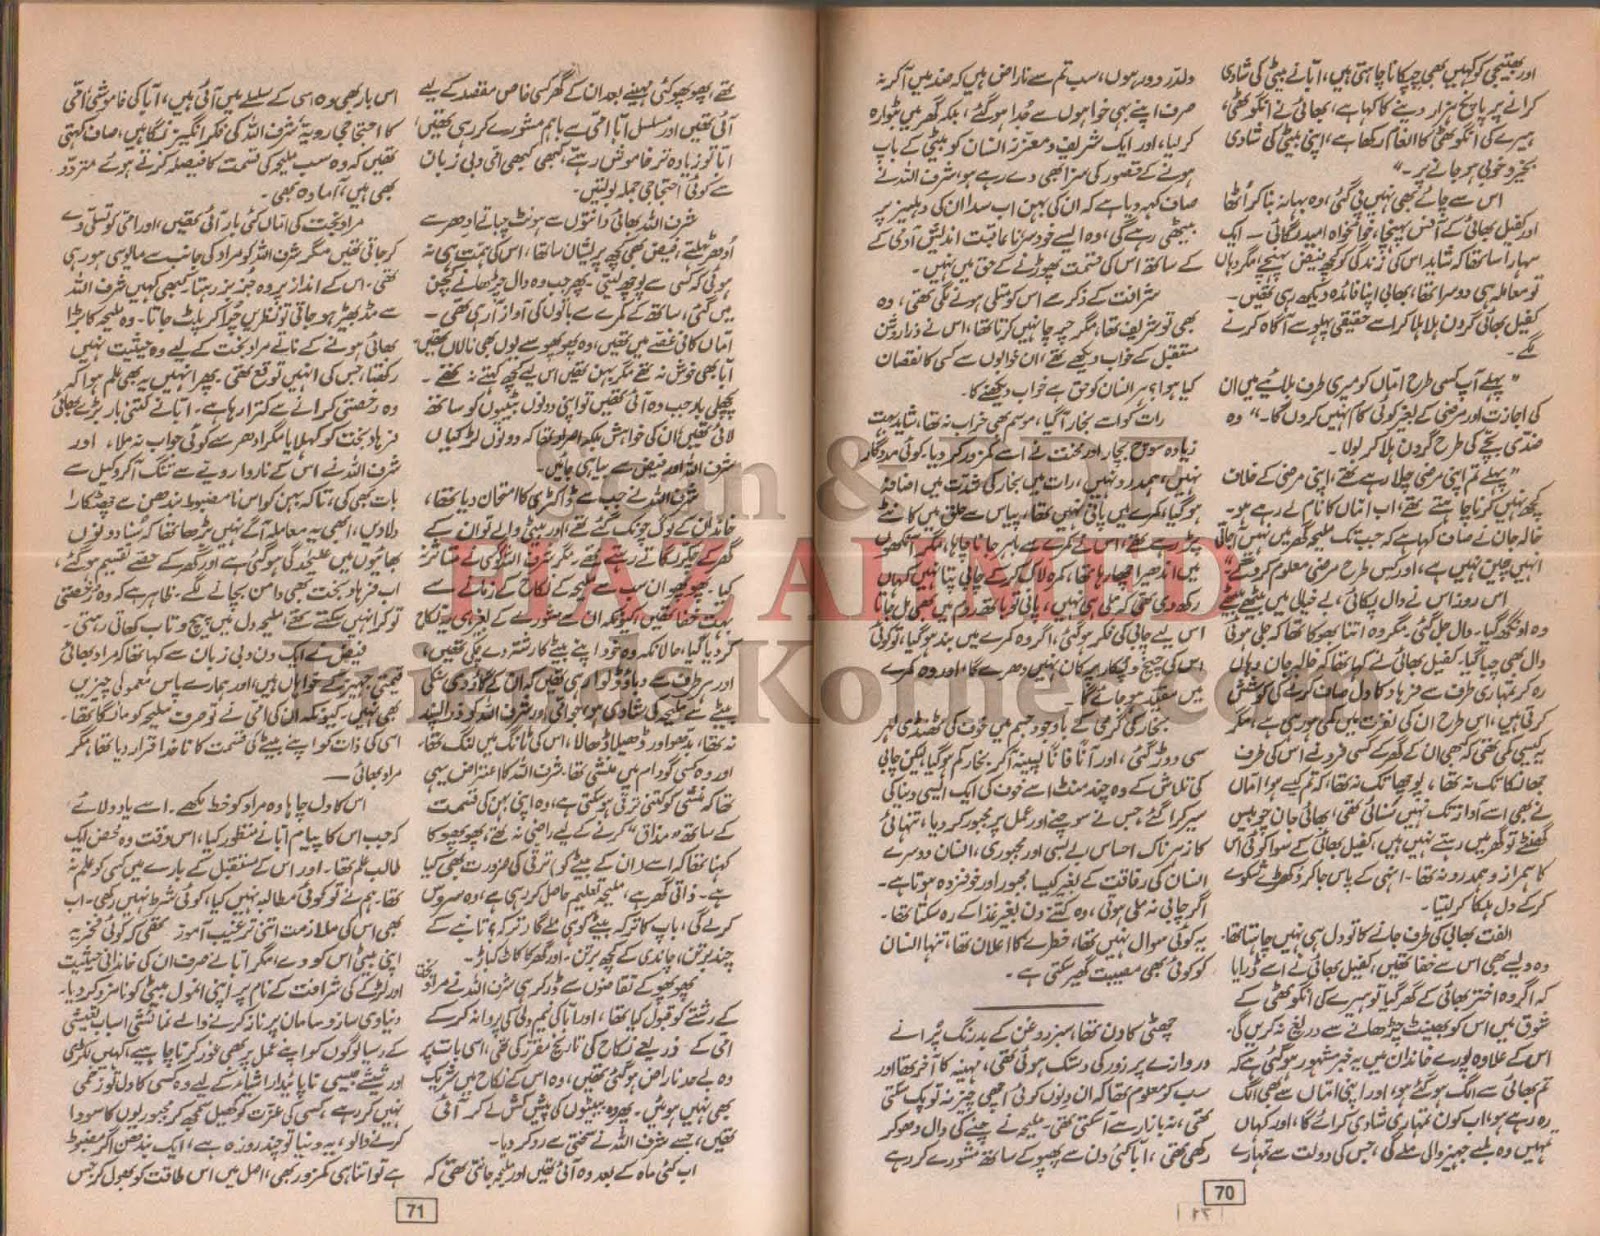 اور بھتیجی کو کہیں بھی چپکانا چاہتی ہیں، ابا نے بیٹی کی شادی
کرانے پر پانچ ہزار دینے کا کہا ہے، بھائی نے انگوٹھی،
ہیرے کی انگوٹھی کا انعام رکھا ہے، اپنی بیٹی کی شادی
بخیر و خوبی ہو جانے پر۔"
اس سے چائے بھی نہیں پی گئی، وہ بہانہ بنا کر اٹھا
اور کفیل بھائی کے آفس پہنچا، خوامخواہ امید لگائی۔ ایک
سہارا سا تھا کہ شاید اس کی زندگی کو کچھ فیض پہنچے، مگر وہاں
تو معاملہ ہی دوسرا تھا، بھابی اپنا فائدہ دیکھ رہی تھیں۔
کفیل بھائی گردن ہلا ہلا کر اسے حقیقی پہلو سے آگاہ کرنے
لگے۔
"پہلے آپ کسی طرح اماں کو میری طرف بلائیے میں ان
کی اجازت اور مرضی کے بغیر کوئی کام نہیں کروں گا۔" وہ
ضدی بچے کی طرح گردن ہلا کر بولا۔
"پہلے تم اپنی مرضی چلا رہے تھے، اپنی مرضی کے خلاف
کچھ نہیں کرنا چاہتے تھے، اب اماں کا نام لے رہے ہو۔
خالہ جان نے صاف کہا ہے کہ جب تک ملیحہ گھر میں نہیں آ جاتی
انہیں چین نہیں ہے، اور کس طرح مرضی معلوم کرو گے"
اس روز اس نے دال پکائی، بے خیالی میں بیٹھے بیٹھے
وہ اونگھ گیا۔ دال جل گئی۔ مگر وہ اتنا بھوکا تھا کہ جلی ہوئی
دال بھی چبا گیا۔ کفیل بھائی نے کہا تھا کہ خالہ جان وہاں
رہ کر تمہاری طرف سے فرہاد کا دل صاف کرنے کی کوشش
کرتی ہیں، اس طرح ان کی نفرت میں کمی ہو رہی ہے، مگر
یہ کیسی کمی تھی کہ کبھی ان کے گھر کے کسی فرد نے اس کی طرف
جھانکا تک نہ تھا، پوچھا تک نہ تھا، کہ تم کیسے ہو، اماں
نے بھی اسے آواز تک نہیں سنائی تھی، بھائی جان چوبیس
گھنٹے تو گھر میں رہتے نہیں ہیں، کفیل بھائی کے سوا کوئی اس
کا ہمراز و ہمدرد نہ تھا۔ انہی کے پاس جا کر دکھڑے شکوے
کر کے دل ہلکا کر لیتا۔
الفت بھابی کی طرف جانے کا تو دل ہی نہیں چاہتا تھا۔
وہ ویسے بھی اس سے خفا تھیں، کفیل بھائی نے اسے ڈرایا
کہ اگر وہ اختر بھائی کے گھر گیا تو ہیرے کی انگوٹھی کے
شوق میں اس کو بھینٹ چڑھانے سے دریغ نہ کریں گی۔
اس کے علاوہ پورے خاندان میں یہ خبر مشہور ہو گئی ہے کہ
تم بھائی سے الگ ہو گئے ہو، اور اپنی اماں سے بھی الگ
رہ رہے ہو، اب کون تمہاری شادی کرائے گا، اور کہاں
تمہیں وہ لمبے جہیز والی ملے گی، جس کی دولت سے تمہارے
دلدر دور ہوں، سب تم سے ناراض ہیں کہ ضد میں آ کر نہ
صرف اپنے بہی خواہوں سے جدا ہو گئے، بلکہ گھر میں بٹوارہ
کر لیا، اور ایک شریف و معزز انسان کو بیٹی کے باپ
ہونے کے قصور کی سزا بھی دے رہے ہو، شرف اللہ نے
صاف کہہ دیا ہے کہ ان کی بہن اب سدا ان کی دہلیز پر
بیٹھی رہے گی، وہ ایسے خود سر نا عاقبت اندیش آدمی کے
ساتھ اس کی قسمت پھوڑنے کے حق میں نہیں۔
شرافت کے ذکر سے اس کو متلی ہونے لگی تھی، وہ
بھی تو شریف تھا، مگر چرچا نہیں کرتا تھا، اس نے ذرا روشن
مستقبل کے خواب دیکھے تھے، ان خوابوں سے کسی کا نقصان
کیا ہوا؟ ہر انسان کو حق ہے خواب دیکھنے کا۔
رات کو اسے بخار آ گیا، موسم بھی خراب نہ تھا، شاید بہت
زیادہ سوچ بچار اور محنت نے اسے کمزور کر دیا۔ کوئی مددگار
نہیں، ہمدرد نہیں، رات میں بخار کی شدت میں اضافہ
ہو گیا، کمرے میں پانی نہیں تھا، پیاس سے حلق میں کانٹے
پڑ رہے تھے، اس نے کمرے سے باہر جانا چاہا، مگر آنکھوں
میں اندھیرا چھا رہا تھا، کمرہ لاک کر کے چابی پتا نہیں کہاں
رکھ دی تھی کہ ملی ہی نہیں، پانی تو باتھ روم میں بھی مل جاتا
اس لیے چابی کی فکر ہو گئی، اگر وہ کمرے میں بند ہو گیا، تو کوئی
اس کی چیخ و پکار پر کان نہیں دھرے گا، اور وہ کمرے
میں مقید ہو جائے گا۔
بخار کی گرمی کے باوجود جسم میں خوف کی ٹھنڈی لہر
سی دوڑ گئی، اور آناً فاناً پسینہ آ کر بخار کم ہو گیا، لیکن چابی
کی تلاش کے وہ چند منٹ اسے خوف کی ایک ایسی دنیا کی
سیر کرا گئے، جس نے سوچنے اور عمل پر مجبور کر دیا، تنہائی
کا زہرناک احساس بے بسی اور مجبوری، انسان دوسرے
انسان کی رفاقت کے بغیر کیسا مجبور اور خوفزدہ ہوتا ہے۔
اگر چابی نہ ملی ہوتی، وہ کتنے دن بغیر غذا کے رہ سکتا تھا۔
یہ کوئی سوال نہیں تھا، خطرے کا اعلان تھا، تنہا انسان
کو کوئی بھی مصیبت گھیر سکتی ہے۔
چھٹی کا دن تھا، سبز روغن کے بدرنگ پرانے
دروازے پر زور کی دستک ہوئی تھی، مہینہ کا آخر تھا اور
سب کو معلوم تھا کہ ان دنوں کوئی اچھی چیز نہ تو پک سکتی
تھی، نہ بازار سے آ سکتی تھی۔ ملیحہ نے چنے کی دال دھو کر
رکھی تھی، آپا کئی دن سے پھپو کے ساتھ مشورے کر رہے
70
تھے، پھوپھو کئی مہینے بعد ان کے گھر کسی خاص مقصد کے لیے
آئی تھیں اور مسلسل ابا امی سے باہم مشورے کر رہی تھیں،
ابا تو زیادہ تر خاموش رہتے، کبھی کبھی امی دبی زبان
سے کوئی احتجاجی جملہ بولتیں۔
شرف اللہ بھائی دانتوں سے ہونٹ چباتے ادھر سے
ادھر ٹہلتے، فیض بھی کچھ پریشان سا تھا، اس کی ہمت ہی نہ
ہوئی کہ کسی سے پوچھ لیتی۔ پھر جب وہ دال چڑھانے کچن
میں گئی، ساتھ کے کمرے سے باتوں کی آواز آ رہی تھی۔
اماں کافی غصے میں تھیں، وہ پھوپھو سے یوں بھی نالاں تھیں
ابا بھی خوش نہ تھے مگر بہن تھیں اس لیے کچھ کہتے نہ تھے۔
پچھلی بار جب وہ آئی تھیں تو اپنی دونوں بیٹیوں کو ساتھ
لائی تھیں، ان کی خواہش بلکہ اصرار تھا کہ دونوں لڑکیاں
شرف اللہ اور فیض سے بیاہی جائیں۔
شرف اللہ نے جب سے ڈاکٹری کا امتحان دیا تھا،
خاندان کے لوگ چونک گئے تھے، اور بیٹی والے تو ان کے
گھر کے چکر لگاتے رہتے تھے، مگر شرف اللہ کو کسی نے متاثر نہ
کیا۔ پھوپھو ان سب سے ملیحہ کے نکاح کے زمانے سے
بہت خفا تھیں، کیونکہ ان کے مشورے کے بغیر ہی یہ نکاح
کر دیا گیا، حالانکہ وہ خود اپنے بیٹے کا رشتہ دے چکی تھیں،
اور ہر طرف سے دباؤ ڈلوا رہی تھیں کہ ان کے
بیٹے سے ملیحہ کی شادی ہو جائے، اور شرف اللہ کو ذرا پسند
نہ تھا، بدھو اور ڈھیلا ڈھالا، اس کی ٹانگ میں لنگ تھا،
اور وہ کسی گودام میں منشی تھا، شرف اللہ کا اعتراض یہی
تھا کہ منشی کو کتنی ترقی ہو سکتی ہے، وہ اپنی بہن کی قسمت
کے ساتھ "مذاق" کرنے کے لیے راضی نہ تھے، پھوپھو کا
کہنا تھا کہ اسے ان کے بیٹے کو، ترقی کی ضرورت بھی کیا
ہے۔ ذاتی گھر ہے، ملیحہ تعلیم حاصل کر رہی ہے، وہ سروس
کر لے گی، باپ کا ترکہ بیٹے کو ہی ملے گا، ترکہ؟ تانبے کے
چند برتن، چاندی کے کچھ برتن۔ اور گھر کا کاٹھ کباڑ۔
پھوپھو کے تقاضوں سے ڈر کر ہی شرف اللہ نے مراد بخت
کے رشتے کو قبول کیا تھا، اور ابا کی نیم دلی کی پروا نہ کر کے
امی کے ذریعے نکاح کی تاریخ مقرر کی تھی، اسی بات پر
وہ بے حد ناراض ہو گئی تھیں، وہ اس کے نکاح میں شریک
بھی نہیں ہوئیں۔ پھر وہ بیٹیوں کی پیش کش لے کر آئی
تھیں، جسے شرف اللہ نے سختی سے رد کر دیا۔
اب کئی ماہ کے بعد وہ آئی تھیں اور ملیحہ جانتی تھی کہ
اس بار بھی وہ اسی کے سلسلے میں آئی ہیں، ابا کی خاموشی، امی
کا احتجاجی رویہ، شرف اللہ کی فکر انگیز نگاہیں، صاف کہتی
تھیں کہ وہ سب ملیحہ کی قسمت کا فیصلہ کرتے ہوئے متردد
بھی ہیں، آمادہ بھی۔
مراد بخت کی اماں کئی بار آئی تھیں، اور امی کو تسلی دے
کر جاتی تھیں مگر شرف اللہ کو مراد کی جانب سے مایوسی ہو رہی
تھی۔ اس کے انداز پر وہ جز بز رہتا، کبھی کہیں شرف اللہ
سے مڈبھیڑ ہو جاتی تو نظریں چرا کر پلٹ جاتا۔ وہ ملیحہ کا بڑا
بھائی ہونے کے ناتے مراد بخت کے لیے وہ حیثیت نہیں
رکھتا، جس کی انہیں توقع تھی۔ پھر انہیں یہ بھی علم ہوا کہ
وہ رخصتی کرانے سے کترا رہا ہے۔ ابا نے کتنی بار بڑے بھائی
فرہاد بخت کو کہلایا مگر ادھر سے کوئی جواب نہ ملا، اور
شرف اللہ نے اس کے ناروا رویے سے تنگ آ کر وکیل سے
بات بھی کی، تاکہ بہن کو اس نامضبوط بندھن سے چھٹکارا
دلا دیں، ابھی یہ معاملہ آگے نہیں بڑھا تھا کہ سنا دونوں
بھائیوں میں علیحدگی ہو گئی ہے اور گھر کے حصے تقسیم ہو گئے،
اب فرہاد بخت بھی دامن بچانے لگے۔ ظاہر ہے کہ وہ رخصتی
تو کرا نہیں سکتے تھے، ملیحہ دل میں پیچ و تاب کھاتی رہتی۔
فیض نے ایک دن دبی زبان سے کہا تھا کہ مراد بھائی
قیمتی جہیز کے خواہاں ہیں، اور ہمارے پاس معمولی چیزیں
بھی نہیں۔ کیونکہ ان کی امی نے تو صرف ملیحہ کو مانگا تھا،
اسی کی ذات کو اپنے بیٹے کی قسمت کا ناخدا قرار دیا تھا، مگر
مراد بھائی۔
اس کا دل چاہا وہ مراد کو خط لکھے۔ اسے یاد دلائے
کہ جب اس کا پیام ابا نے منظور کیا، اس وقت وہ محض ایک
طالب علم تھا۔ اور اس کے مستقبل کے بارے میں کسی کو علم نہ
تھا۔ ہم نے تو کوئی مطالبہ نہیں کیا، کوئی شرط نہیں رکھی۔ اب
بھی اس کی ملازمت اتنی ترغیب آموز نہ تھی کہ کوئی فخریہ
اپنی بیٹی اس کو دے، مگر ابا نے صرف ان کی خاندانی حیثیت
اور لڑکے کی شرافت کے نام پر اپنی انمول بیٹی کو نامزد کر دیا۔
دنیاوی ساز و سامان پر ناز کرنے والے نمائشی اسباب تعیشی
کے رسیا لوگوں کو اپنے عمل پر بھی غور کرنا چاہیے، کہیں لکڑی
اور شیشے جیسی ناپائیدار اشیاء کے لیے وہ کسی کا دل تو زخمی
نہیں کر رہے، کسی کی عزت کو کھیل سمجھ کر مجبوریوں کا سودا
کرنے والو، یہ دنیا تو چند روزہ ہے، ایک بندھن اگر مضبوط
ہے تو اتنا ہی کمزور بھی، اصل میں اس طاقت کو بھول کر جس
71
Scan & PDF
FIAZ AHMED
Friends Korner.com